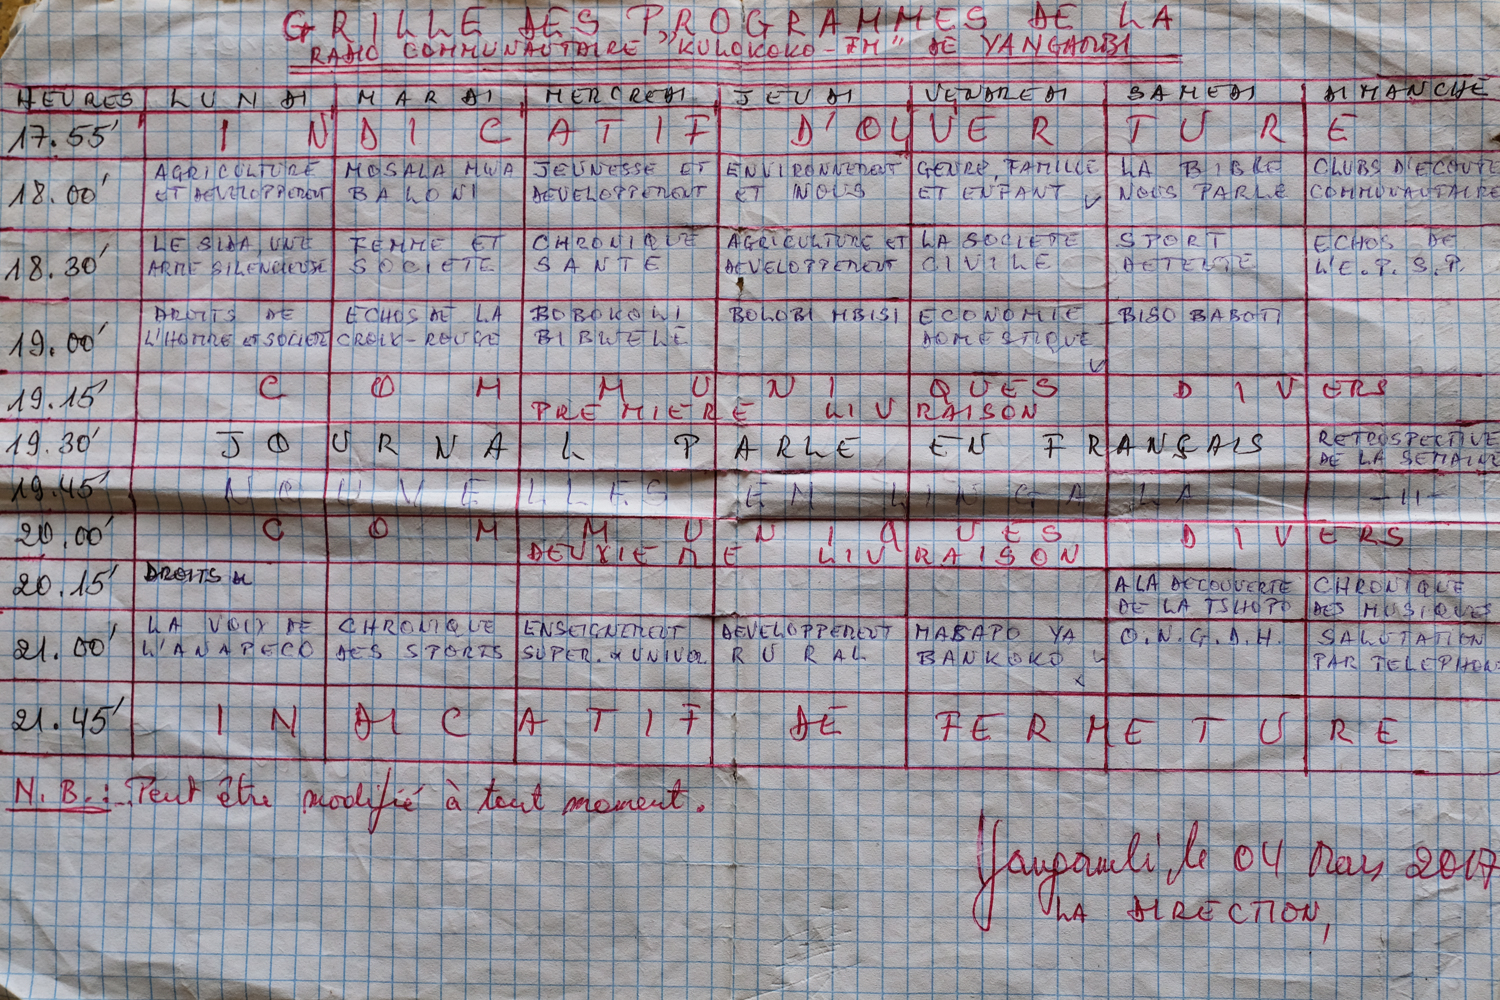 GRILLE DES PROGRAMMES DE LA
RADIO COMMUNAUTAIRE "KULOKOKO-FM" DE YANGAMBI
HEURES LUNDI MARDI MERCREDI JEUDI VENDREDI SAMEDI DIMANCHE
17.55' INDICATIF D'OUVERTURE
AGRICULTURE MOSALA MWA JEUNESSE ET ENVIRONNEMENT GENRE, FAMILLE LA BIBLE CLUBS D'ECOUTE
18.00' ET DEVELOPPEMENT BALONI DEVELOPPEMENT ET NOUS ET ENFANT NOUS PARLE COMMUNAUTAIRE
LE SIDA, UNE FEMME ET CHRONIQUE AGRICULTURE ET LA SOCIETE SPORT ECHOS DE
18.30' ARME SILENCIEUSE SOCIETE SANTE DEVELOPPEMENT CIVILE DETENTE L'E.P.S.P.
DROITS DE ECHOS DE LA BOBOKOLI BOLOBI MBISI ECONOMIE BISO BABOTI
19.00' L'HOMME et SOCIETE CROIX-ROUGE BIBWELE DOMESTIQUE
19.15' COMMUNIQUES DIVERS
PREMIERE LIVRAISON
19.30' JOURNAL PARLE EN FRANÇAIS RETROSPECTIVE
DE LA SEMAINE
19.45' NOUVELLES EN LINGALA -11-
20.00' COMMUNIQUES DIVERS
DEUXIEME LIVRAISON
20.15' DROITS A LA DECOUVERTE CHRONIQUE
DE LA TSHOPO DES MUSIQUES
LA VOIX DE CHRONIQUE ENSEIGNEMENT DEVELOPPEMENT MABAPO YA O.N.G.D.H. SALUTATION
21.00' L'ANAPECO DES SPORTS SUPER. et UNIVER. RURAL BANKOKO PAR TELEPHONE
21.45' INDICATIF DE FERMETURE
N.B.: Peut être modifié à tout moment.
Yangambi le 04 Mars 2017
LA DIRECTION,